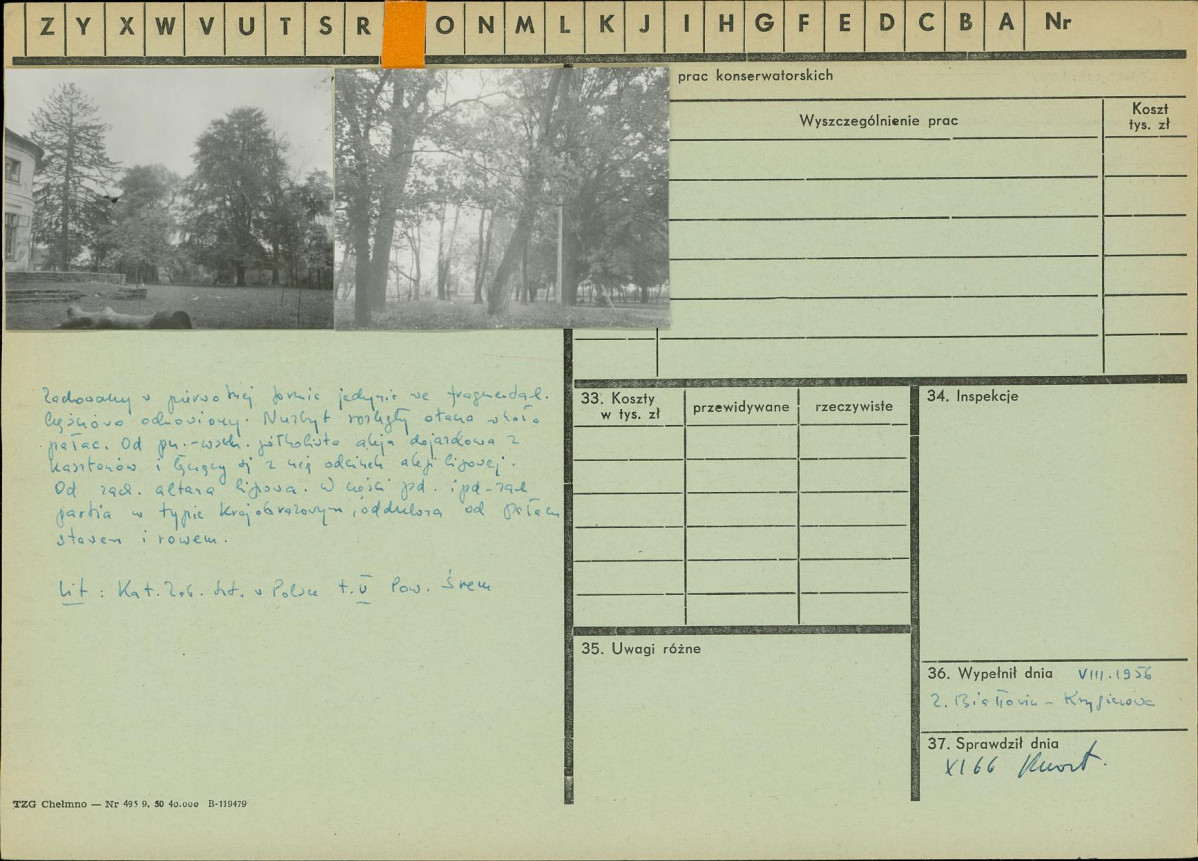 Z Y X W V U T S R O N M L K J I H G F E D C B A Nr
prac konserwatorskich
Wyszczególnienie prac
Koszt
tys. zł
Zachowany w pierwotnej formie jedynie we fragmentach.
Częściowo odnowiony. Nazbyt rozległy otacza wkoło
pałac. Od pn.-wsch. półkolista aleja dojazdowa z
kasztanów i łączący się z nią odcinek alei lipowej.
Od zach. altana lipowa. W części pd. i pd-zach
partia w typie krajobrazowym, oddzielona od pałacu
stawem i rowem.
Lit: Kat. Zab. Szt. w Polsce t. V Pow. Śrem
33. Koszty
w tys. zł
przewidywane
rzeczywiste
34. Inspekcje
35. Uwagi różne
36. Wypełnił dnia VIII.1956
Z. Białłowicz-Krygierowa
37. Sprawdził dnia
XI 66
TZG Chełmno — Nr 495 9. 50 40.000 B-119479